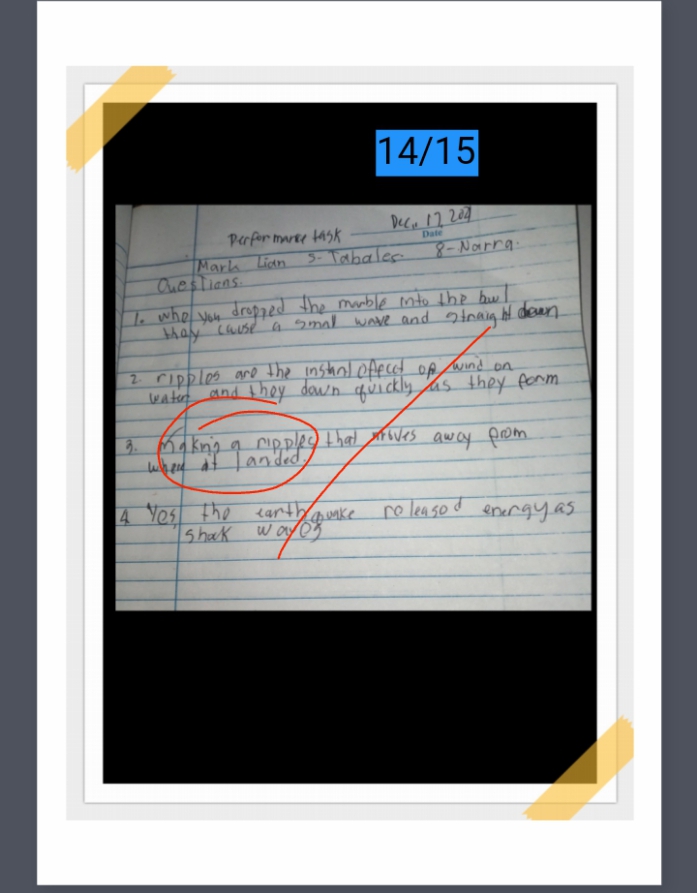 14/15
Dec. 17, 202
Date
Performance task
Mark Lian S. Tabales 8-Narra.
Questions.
1. who you dropped the marble into the bowl
they cause a small wave and straight down
2 ripples are the instant effect of wind on
water and they down quickly as they form
3. making a ripples that moves away from
where it landed.
4 Yes, the earthquake released energy as
shak waves